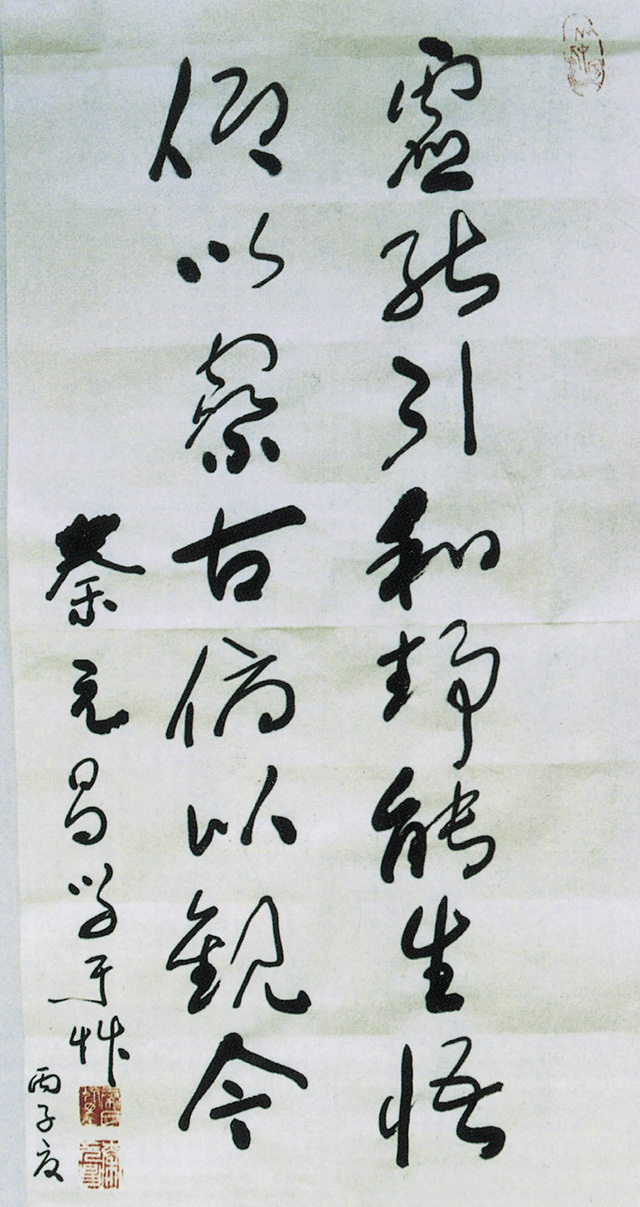 虛能引和静能生悟
仰以察古俯以觀今
秦元昌学于
丙子夏